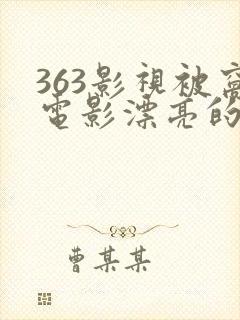 363影視被窩
電影漂亮的
曹某某